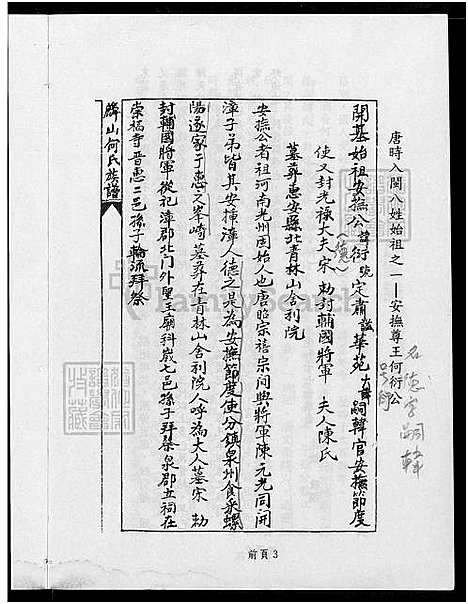 唐時入閩八姓始祖之一—安撫尊王何衍公
名憲字嗣韓
號
開基始祖安撫公諱衍號定肅諡華苑 嗣韓官安撫節度
(憲)
使又封光祿大夫宋 勅封輔國將軍 夫人陳氏
墓葬惠安縣北青林山舍利院
安撫公者祖河南光州固始人也唐昭宗禧宗間與將軍陳元光同開
漳子弟皆其安揷漳人德之是為安撫節度使分鎮泉州食采螺
陽遂家于惠之峯崎墓葬在青林山舍利院人呼為大人墓宋 勅
封輔國將軍從祀漳郡北門外聖王廟科歲七邑孫子拜祭泉郡立祠在
崇福寺晋惠二邑孫子輪流拜祭
麟山何氏族譜
前頁3